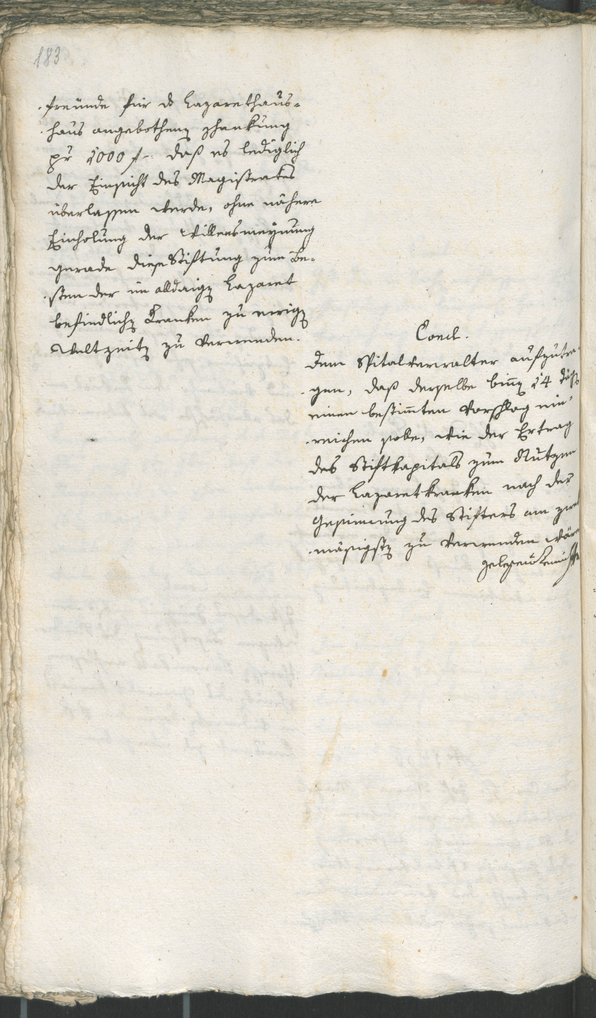 183
freunde für ds Lazarethaus-
haus angebothenen Schankung
pr 1000 f. daß es lediglich
der Einsicht des Magistrates
überlassen werde, ohne nähere
Einholung der Willensmeynung
gerade diese Stiftung zum Be-
sten der im alldaigen Lazaret
befindlichen Kranken zu ewigen
Weltzeiten zu verwenden.
Concl.
Dem Spitalverwalter aufzutra-
gen, daß derselbe binnen 14 Täg
einen bestimmten Vorschlag ein-
reichen solle, wie der Ertrag
des Stiftkapitals zum Nutzen
der Lazaretkranken nach der
Gesinnung des Stifters am zwek-
mäsigsten zu verwenden wäre